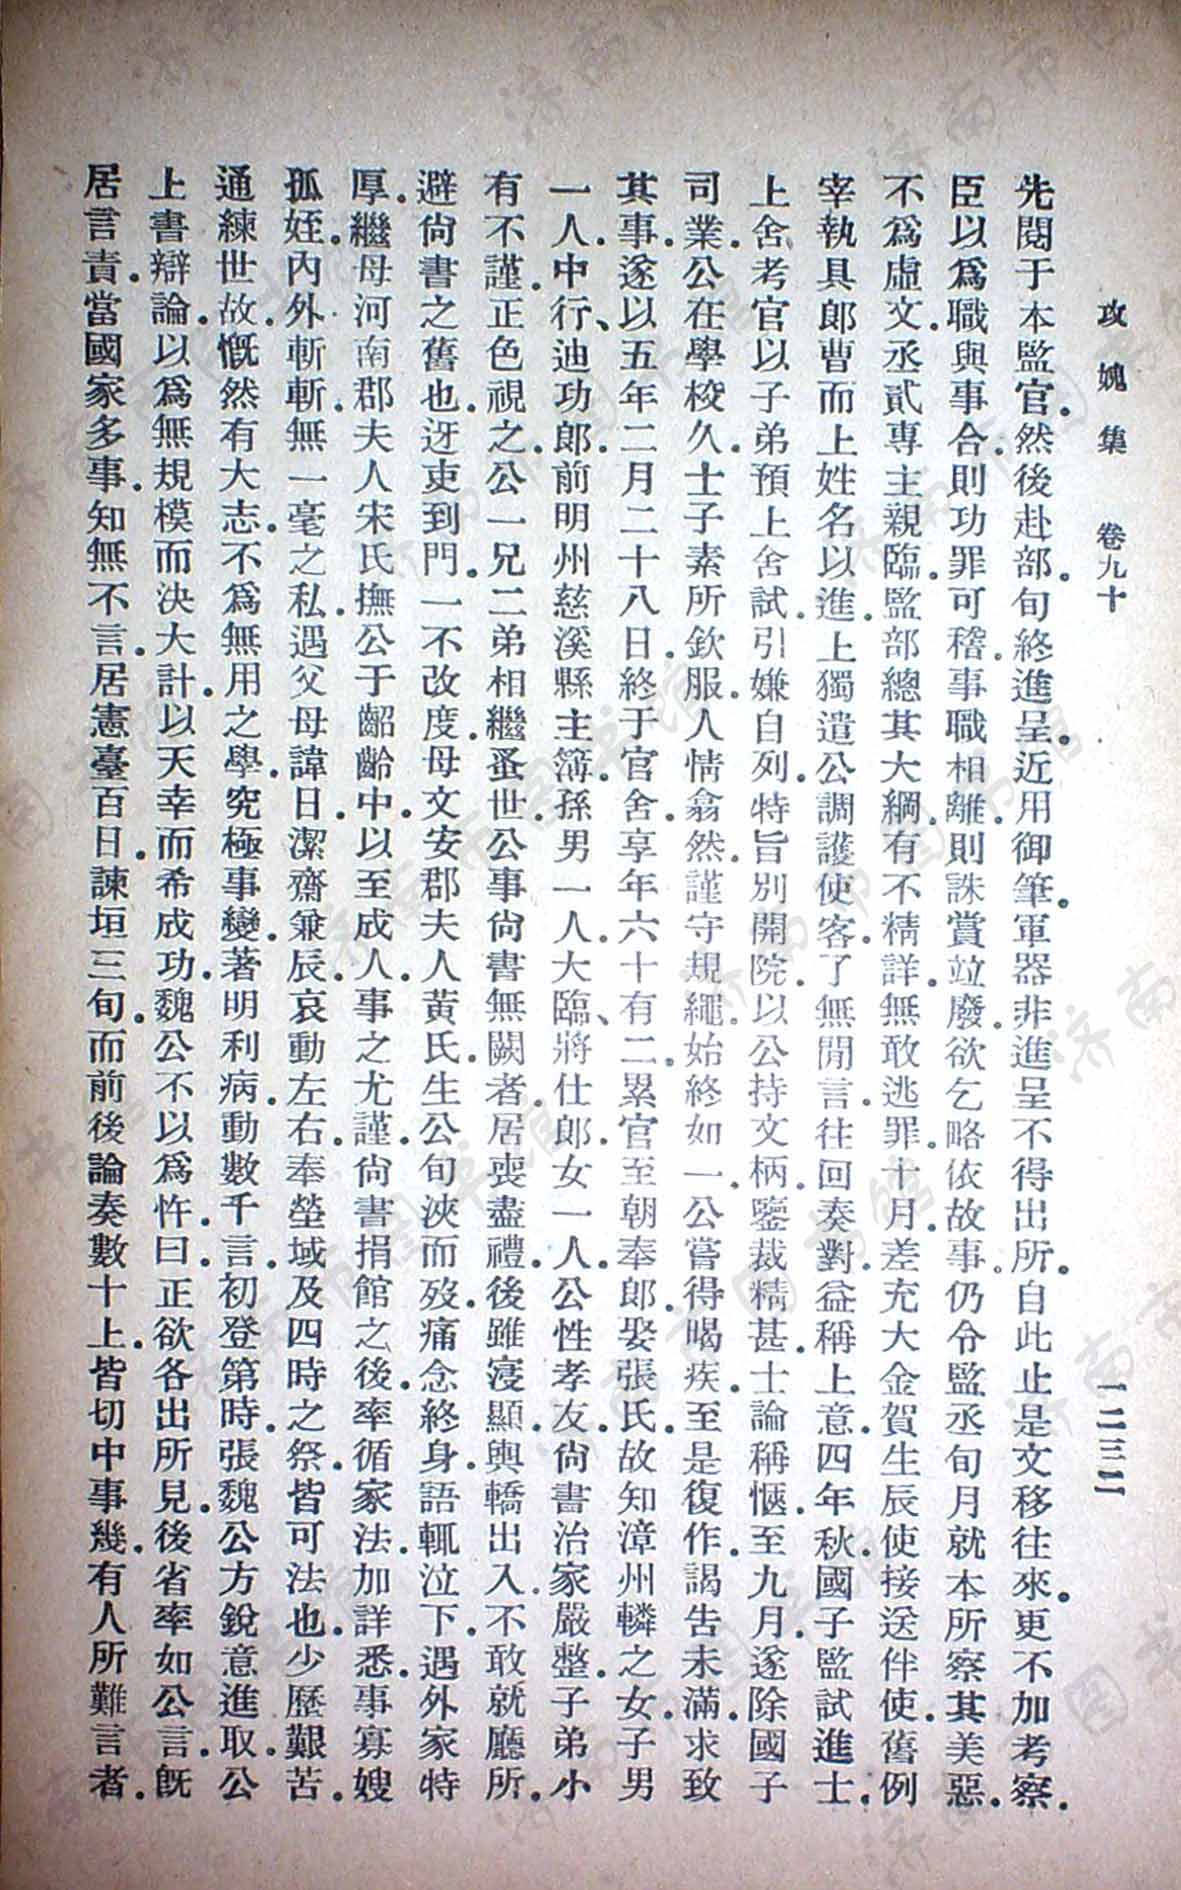 攻媿集 卷九十 一二三二
先閱于本監官.然後赴部.旬終進呈.近用御筆.軍器非進呈不得出所.自此止是文移往來.更不加考察.
臣以爲職與事合.則功罪可稽.事職相離.則誅賞竝廢.欲乞略依故事.仍令監丞旬月就本所察其美惡.
不爲虛文.丞貳專主親臨.監部總其大綱.有不精詳.無敢逃罪.十月.差充大金賀生辰使接送伴使.舊例
宰執具郎曹而上姓名以進.上獨遣公調護使客.了無閒言.往回奏對.益稱上意.四年秋.國子監試進士.
上舍考官以子弟預上舍試.引嫌自列.特旨別開院.以公持文柄.鑒裁精甚.士論稱愜.至九月.遂除國子
司業.公在學校久.士子素所欽服.人情翕然.謹守規繩.始終如一.公嘗得喝疾.至是復作.謁告未滿.求致
其事.遂以五年二月二十八日.終于官舍.享年六十有二.累官至朝奉郎.娶張氏.故知漳州轔之女.子男
一人.中行、迪功郎.前明州慈溪縣主簿.孫男一人.大臨、將仕郎.女一人.公性孝友.尙書治家嚴整.子弟小
有不謹.正色視之.公一兄二弟相繼蚤世.公事尙書無闕者.居喪盡禮.後雖寖顯.輿轎出入.不敢就廳所.
避尙書之舊也.迓吏到門.一不改度.母文安郡夫人黃氏.生公旬浹而歿.痛念終身.語輒泣下.遇外家特
厚.繼母河南郡夫人宋氏.撫公于齠齡中.以至成人.事之尤謹.尙書捐館之後.率循家法.加詳悉.事寡嫂
孤姪.內外斬斬.無一毫之私.遇父母諱日.潔齋兼辰.哀動左右.奉塋域及四時之祭.皆可法也.少歷艱苦.
通練世故.慨然有大志.不爲無用之學.究極事變.著明利病.動數千言.初登第時.張魏公方銳意進取.公
上書辯論.以爲無規模而決大計.以天幸而希成功.魏公不以爲忤.曰.正欲各出所見.後省率如公言.旣
居言責.當國家多事.知無不言.居憲臺百日.諫垣三旬.而前後論奏數十上.皆切中事幾.有人所難言者.